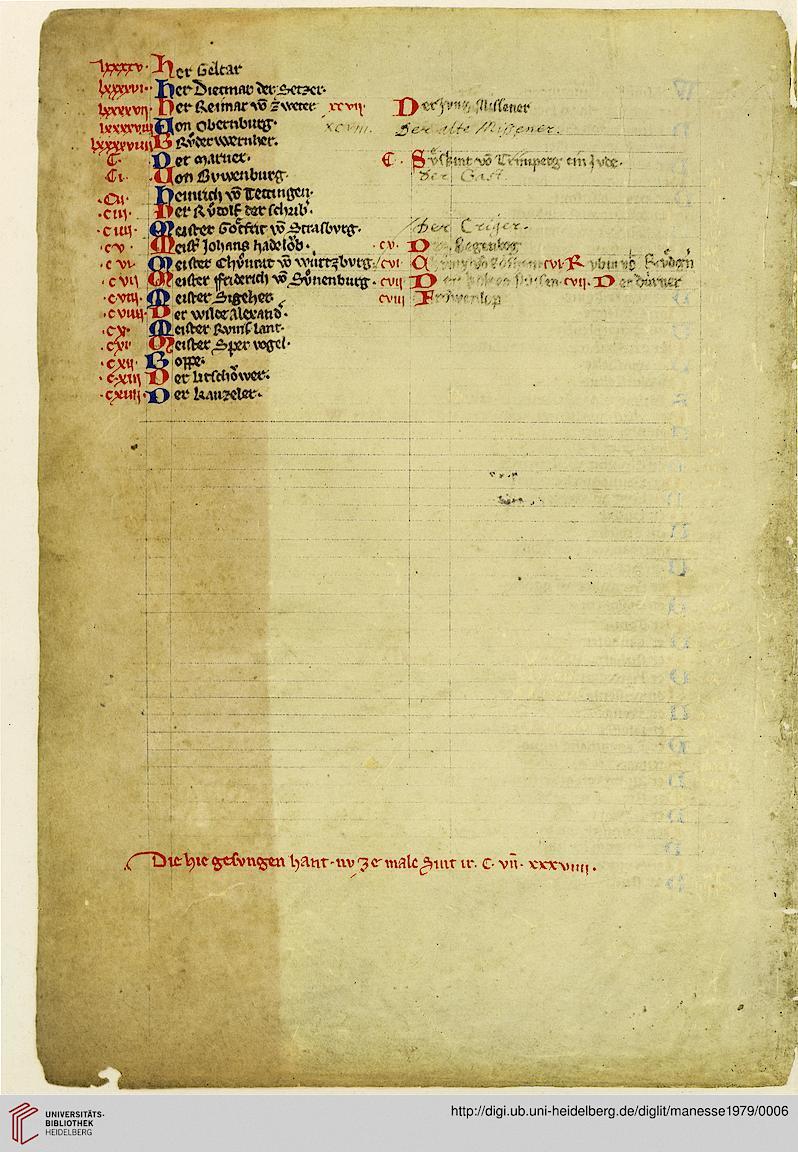 lxxxxv· Her Geltar
lxxxxvi· Her Dietmar der Setzer·
lxxxxvii· Her Reimar võ Zweter xcvij· Der jung Missener
lxxxxviii Von Obernburg· xcviii. Der alte Missener.
lxxxxviiii Brůder Wernher·
·C· Der Marner· C· Sůskint võ Trimperg ein Jude·
·Ci· Von Bvwenburg· der Gast
·Cii· Heinrich võ Tettingen·
·ciii· Her Růdolf der schrib̾·
·ciiii· Meister Gotfrit võ Strasburg· der Criger.
·cv· Meist̾ Johans hadelǒb· ·cv· Regenbog
·cvi· Meister Chůnrat võ Würtzburg· cvi· cvi· Rubin
·cvii· Meister Friderich võ Sůnenburg· cvii· D cvii· Der dürner
·cviii· Meister Sigeher cviii Frǒwenlop
·cviiii· Der wilde Alexand̾·
·cx· Meister Rvmslant·
·cxi· Meister Sper vogel·
·cxii· Boppe·
·cxiii Der Litschǒwer·
·cxiiii· Der kanzeler·
Die hie gesvngen hant· nv ze male Sint ir· C· vñ· xxxviiii·
UNIVERSITÄTS-
BIBLIOTHEK
HEIDELBERG
http://digi.ub.uni-heidelberg.de/diglit/manesse1979/0006